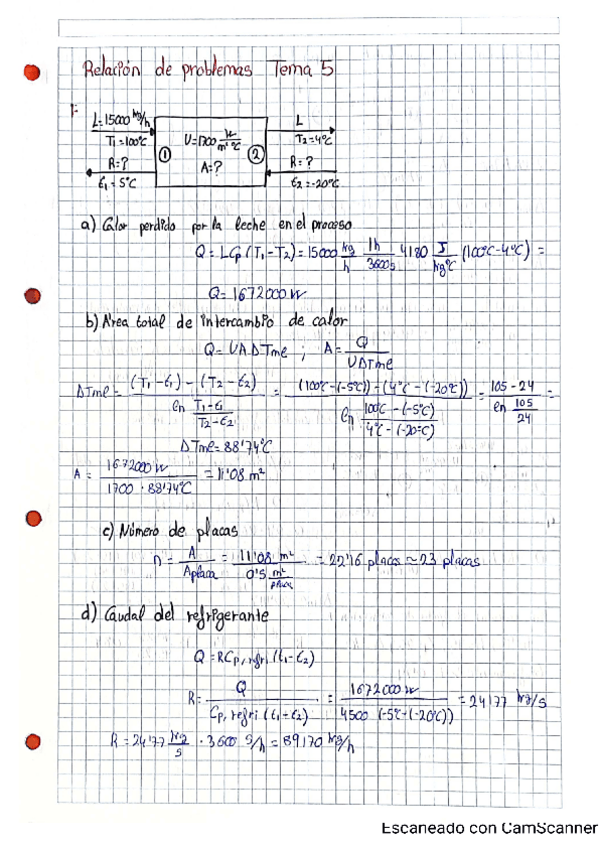 Relación de problemas Tema 5
1-
L=15000 kg/h
T₁=100ºC
R=?
t₁=5ºC
①
U=1700 W/m²ºC
A=?
②
L
T₂=4ºC
R=?
t₂=-20ºC
a) Calor perdido por la leche en el proceso
Q = LCp (T₁-T₂) = 15000 kg/h 1h/3600s 4180 J/kgºC (100ºC-4ºC) =
Q=1672000 W
b) Área total de intercambio de calor
Q=UAΔTme ; A= Q/UΔTme
ΔTme = (T₁-t₁)-(T₂-t₂) / ln T₁-t₁/T₂-t₂ = (100ºC-(-5ºC))-(4ºC-(-20ºC)) / ln 100ºC-(-5ºC)/4ºC-(-20ºC) = 105-24 / ln 105/24 =
ΔTme=88'74ºC
A = 1672000 W / 1700 · 88'74ºC = 11'08 m²
c) Número de placas
n = A/Aplaca = 11'08 m² / 0'5 m²/placa = 22'16 placas ≃ 23 placas
d) Caudal del refrigerante
Q=RCp, refri (t₁-t₂)
R= Q / Cp, refri (t₁-t₂) = 1672000 W / 4500 (-5ºC-(-20ºC)) = 24'77 kg/s
R=24'77 kg/s · 3600 s/h = 89170 kg/h
Escaneado con CamScanner